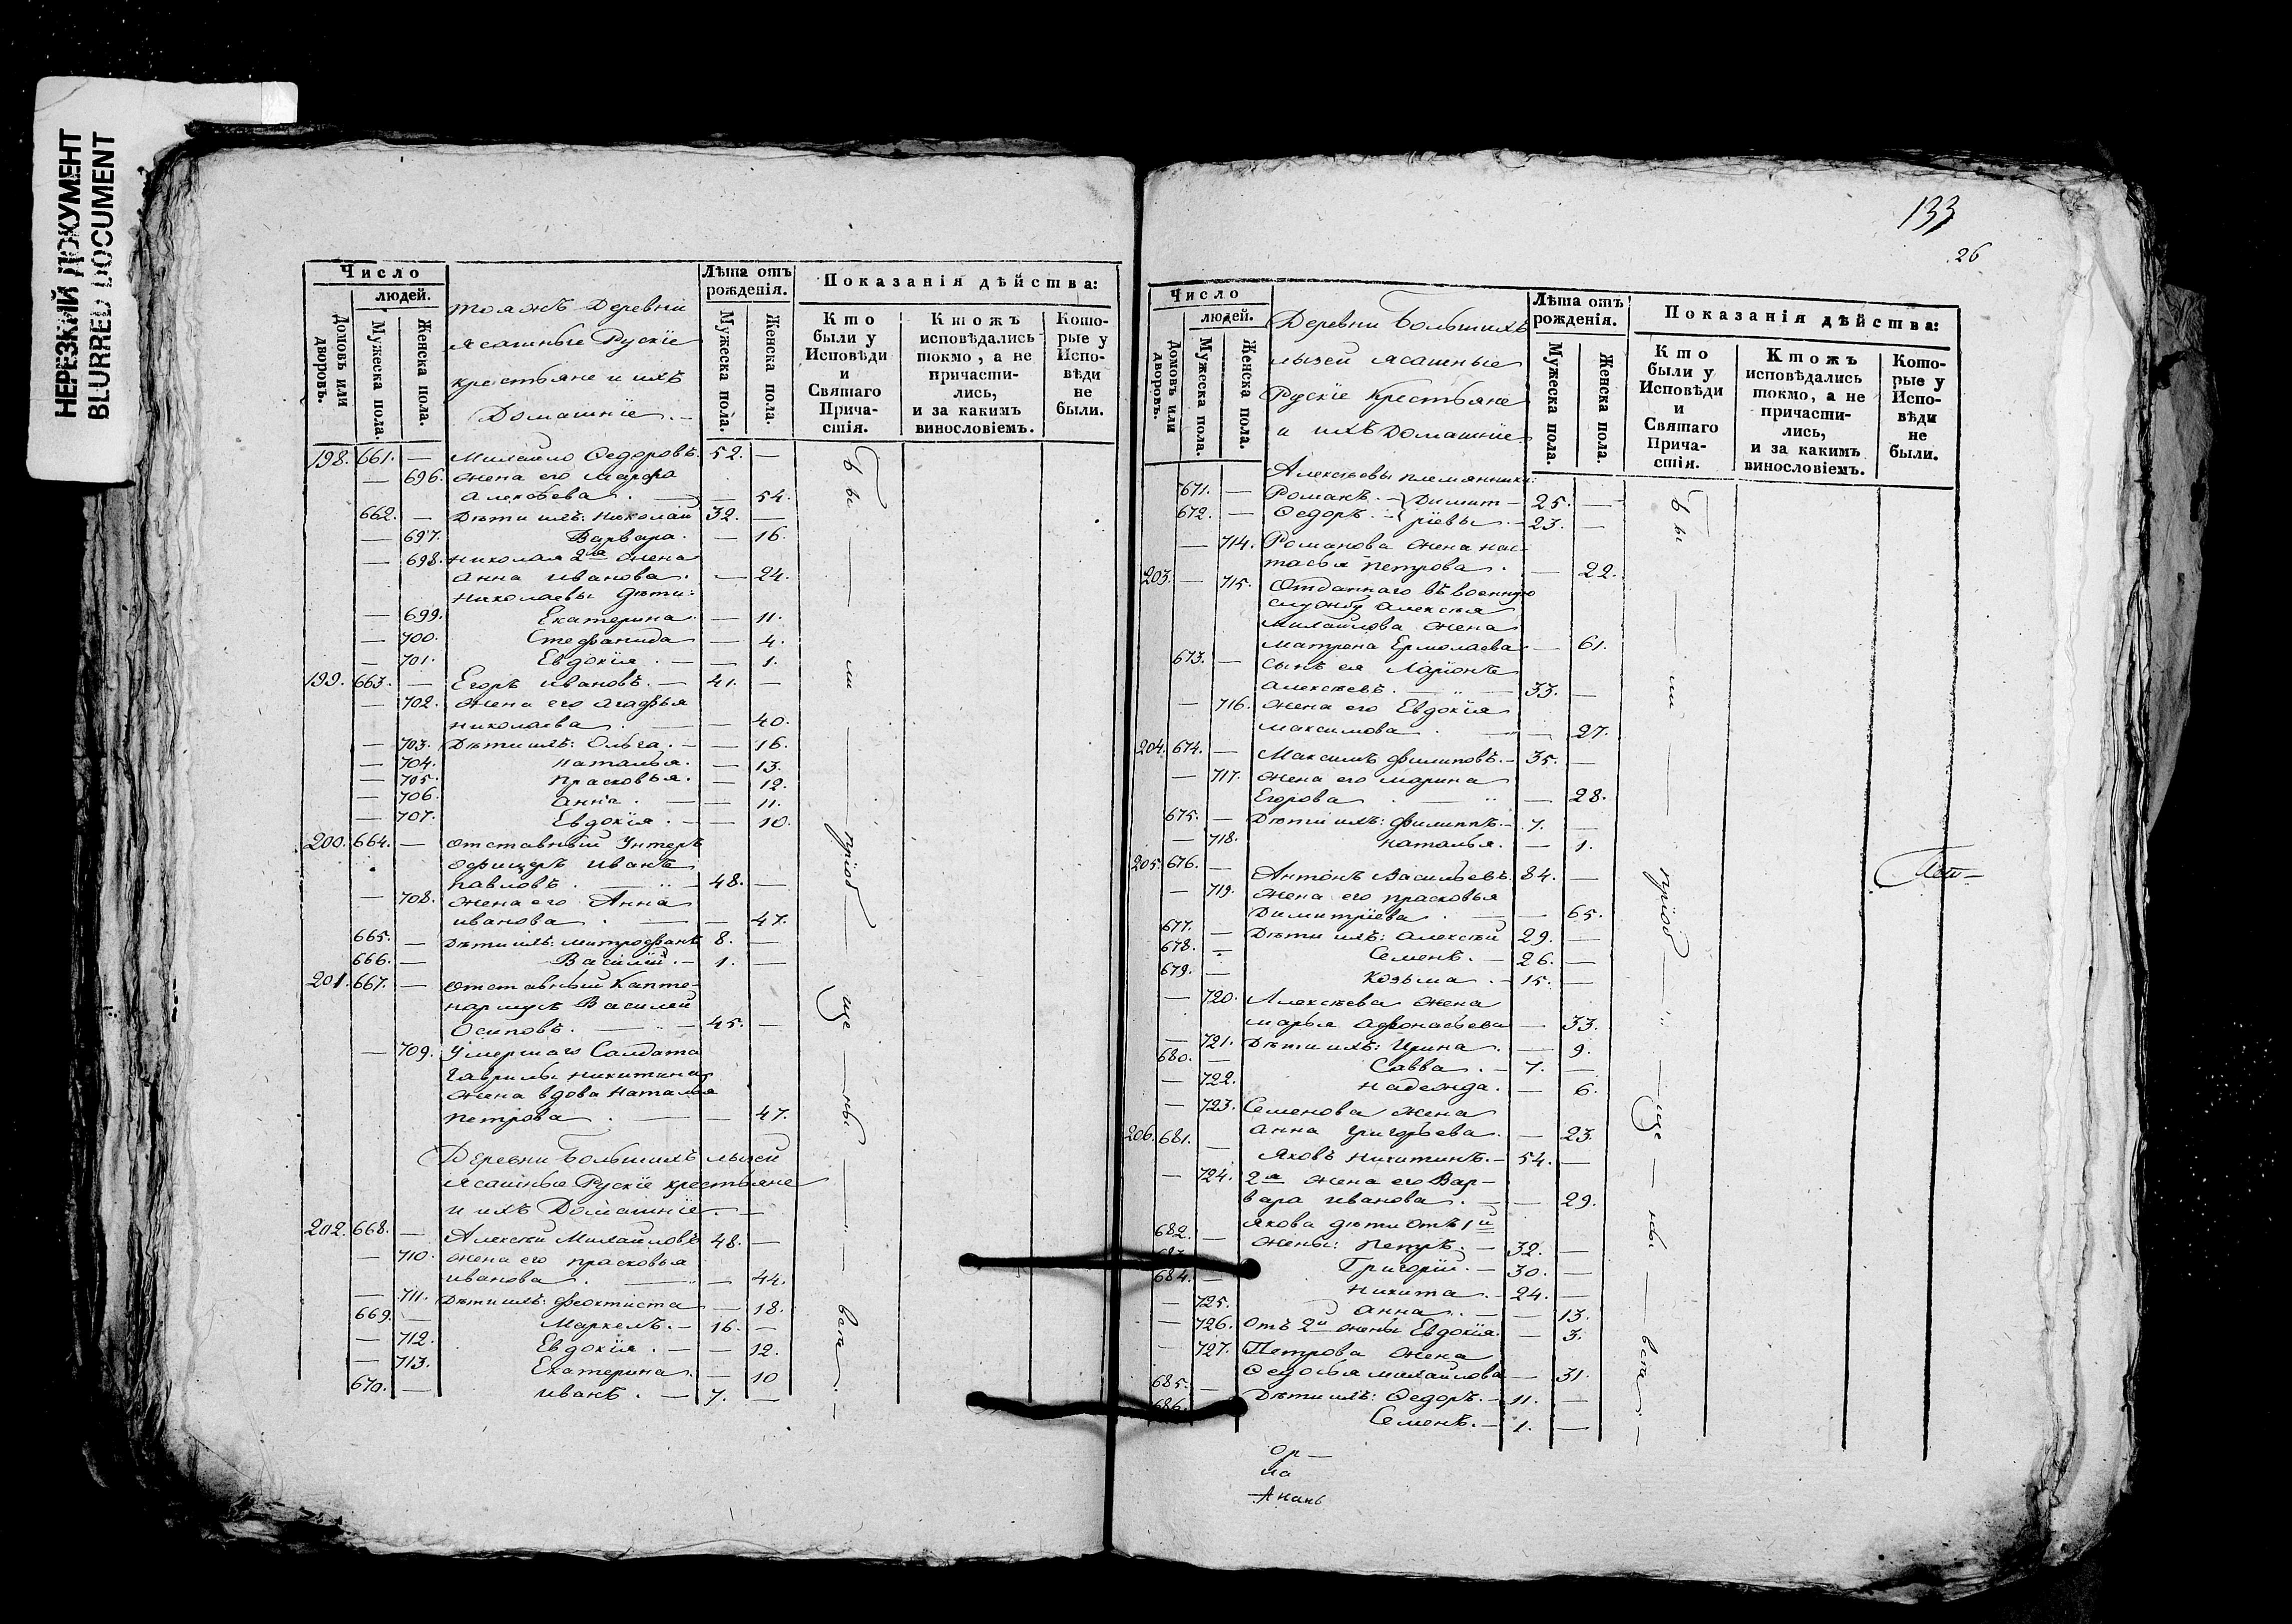 НЕРЕЗКИЙ ДОКУМЕНТ
BLURRED DOCUMENT
Число
людей.
Домовъ или дворовъ.
Мужеска пола.
Женска пола.
тояжъ Деревни
ясашные Рускіе
крестьяне и ихъ
Домашніе. —
Лѣта отъ рожденія.
Мужеска пола.
Женска пола.
Показанія дѣйства:
Кто были у Исповѣди и Святаго Причастія.
Ктожъ исповѣдались токмо, а не причастились, и за какимъ винословіемъ.
Которые у Исповѣди не были.
198. 661. — Михайло Ѳедоровъ. 52. —
— 696. жена его Марфа
Алексѣева . — — 54.
662. — Дѣти ихъ: Николай 32. —
— 697. Варвара. — 16.
— 698. Николая 2я жена
Анна Иванова. — 24.
Николаевы дѣти:
— 699. Екатерина — 11.
— 700. Стефанида — 4.
— 701. Евдокія . — — 1.
199. 663. — Егоръ Ивановъ. — 41. —
— 702. жена его Агафья
Николаева . — — 40.
— 703. Дѣти ихъ: Ольга. — — 16.
— 704. Наталья. — 13.
— 705. Прасковья. — 12.
— 706. Анна . — — 11.
— 707. Евдокія . — — 10.
200. 664. — Отставный Унтеръ
Офицеръ Иванъ
Павловъ . — 48. —
— 708. жена его Анна
Иванова . — — 47.
665. — Дѣти ихъ: Митрофанъ 8. —
666. — Василій. — 1. —
201. 667. — Отставный Капте-
нармусъ Василей
Осиповъ. — 45. —
— 709. Умершаго Солдата
Гаврилы Никитина
жена вдова Наталья
Петрова . — — 47.
Деревни Большихъ лызей
Ясашные Рускіе крестьяне
и ихъ Домашніе. —
202. 668. — Алексѣй Михайловъ 48. —
— 710. жена его Прасковья
Иванова . — — 44.
— 711. Дѣти ихъ: Феоктиста — 18.
669. — Маркелъ. — 16. —
— 712. Евдокія . — — 12.
— 713. Екатерина. — 10
670. — Иванъ . — 7. —
Бы — ли — пріоб — ще — ны — вси. —
133
26
Число
людей.
Домовъ или дворовъ.
Мужеска пола.
Женска пола.
Деревни Большихъ
лызей ясашные
Рускіе Крестьяне
и ихъ Домашніе
Лѣта отъ рожденія.
Мужеска пола.
Женска пола.
Показанія дѣйства:
Кто были у Исповѣди и Святаго Причастія.
Ктожъ исповѣдались токмо, а не причастились, и за какимъ винословіемъ.
Которые у Исповѣди не были.
Алексѣевы племянники:
671. — Романъ. — Димит- 25. —
672. — Ѳедоръ. — ріевы . — 23. —
— 714. Романова жена Нас-
тасья Петрова . — 22.
203. — 715. Отданнаго въ военную
службу Алексѣя
Михайлова жена
Матрена Ермолаева — 61.
673. — сынъ ея Ларіонъ
Алексѣевъ. — 33. —
— 716. жена его Евдокія
Максимова . — — 27.
204. 674. — Максимъ Филиповъ. — 35. —
— 717. жена его Марина
Егорова . — — 28.
675. — Дѣти ихъ: Филиппъ. — 7. —
— 718. Наталья. — 1.
205. 676. — Антонъ Васильевъ. 84. —
— 719. жена его Прасковья
Димитріева . — — 65.
677. — Дѣти ихъ: Алексѣй 29. —
678. — Семенъ. — 26. —
679. — Козьма . — 15. —
— 720. Алексѣева жена
Марья Афонасьева — 33.
— 721. Дѣти ихъ: Ирина . — 9.
680. — Савва . — 7. —
— 722. Надежда. — 6.
— 723. Семенова жена
Анна Григорьева. — 23.
206. 681. — Яковъ Никитинъ. — 54. —
— 724. 2я жена его Вар-
вара Иванова . — — 29.
Якова дѣти отъ 1й
682. — жены: Петръ. — 32. —
683. Григорій. — 30. —
684. — Никита . — 24. —
— 725. Анна . — — 13.
— 726. Отъ 2й жены Евдокія. — 3.
— 727. Петрова жена
Ѳедосья Михайлова — 31.
685. — Дѣти ихъ: Ѳедоръ. — 11. —
686. Семенъ. — 1. —
Бы — ли — пріоб — ще — ны — вси. —